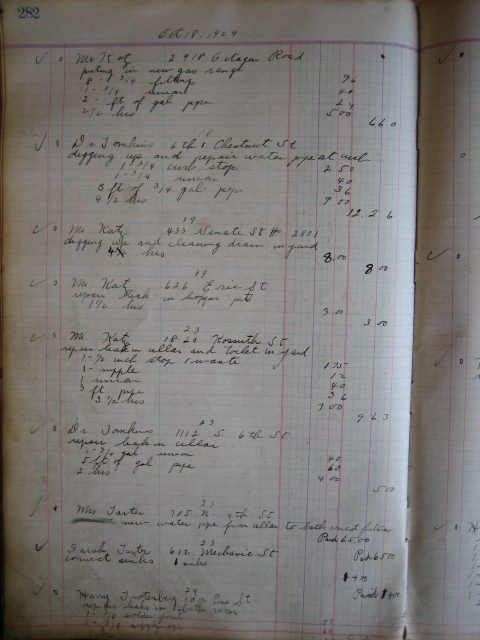 282
Oct 18 - 1929
Mr Katz 2918 Road
puting in new gas range
8 - 3/4 fittings 96
1 - 3/4 union 40
2 - ft of gal pipe 24
2 1/2 hrs 5 00
6 60
18
Dr Tomkins 6th & Chestnut St
digging up and repair water pipe at curb
1 - 3/4 curb stop 2 50
1 - 3/4 union 40
3 ft of 3/4 gal pipe 36
4 1/2 hrs 9 00
12.26
19
Mr Katz 433 Senate St # 2801
digging up and cleaning drain in yard
4 hrs 8.00
8 00
19
Mr Katz 626 Erie St
repair leak in hopper pit
1 1/2 hrs 3 00
3 00
23
Mr Katz 1820 Kossuth St
repair leak in cellar and toilet in yard
1 - 1/2 inch stop & waste 1 75
1 - nipple 12
1 union 40
3 ft pipe 36
3 1/2 hrs 7 00
9 63
23
Dr Tomkins 1112 S 6th St
repair leak in cellar
1 - 3/4 gal union 40
5 ft of gal pipe 60
2 hrs 4.00
5 00
23
Mrs Tarter 705 N 4th St
new water pipe from cellar to bath
Paid 65.00
23
Sarah Tarter 612 Mechanic St
Paid 65 00
connect sinks
1 400
24
Harry St
Paid 1400
repair leaks in bath room